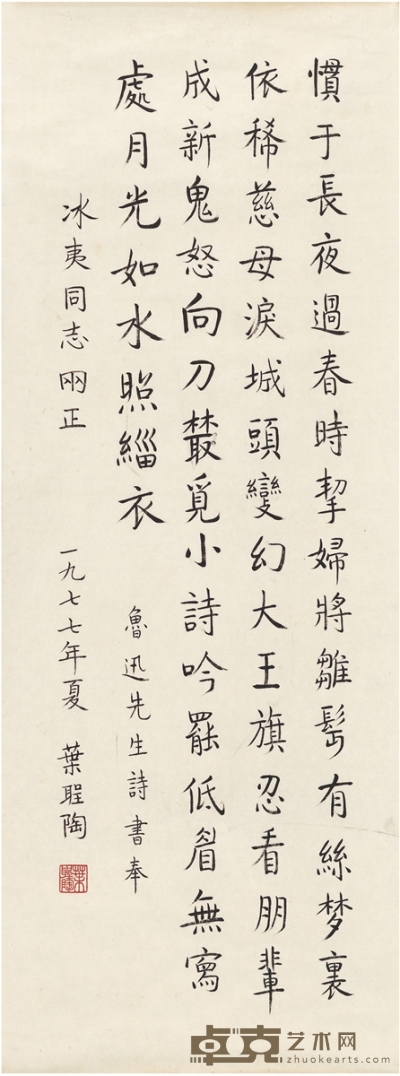 慣于長夜過春時挈婦將雛鬢有絲梦裏
依稀慈母淚城頭變幻大王旗忍看朋輩
成新鬼怒向刀叢覓小詩吟罷低眉無寫
處月光如水照緇衣
魯迅先生詩書奉
冰夷同志兩正
一九七七年夏 葉聖陶
卓克艺术网
zhuokearts.com